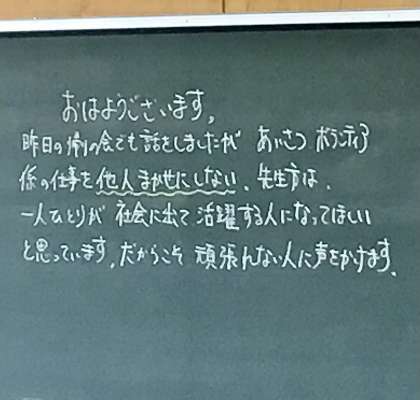 おはようございます。
昨日の帰りの会でも話をしましたが あいさつ ボランティア
係の仕事を他人まかせにしない。先生方は、
一人ひとりが 社会に出て 活躍する人になってほしい
と思っています。だからこそ 頑張れない人に声をかけます。